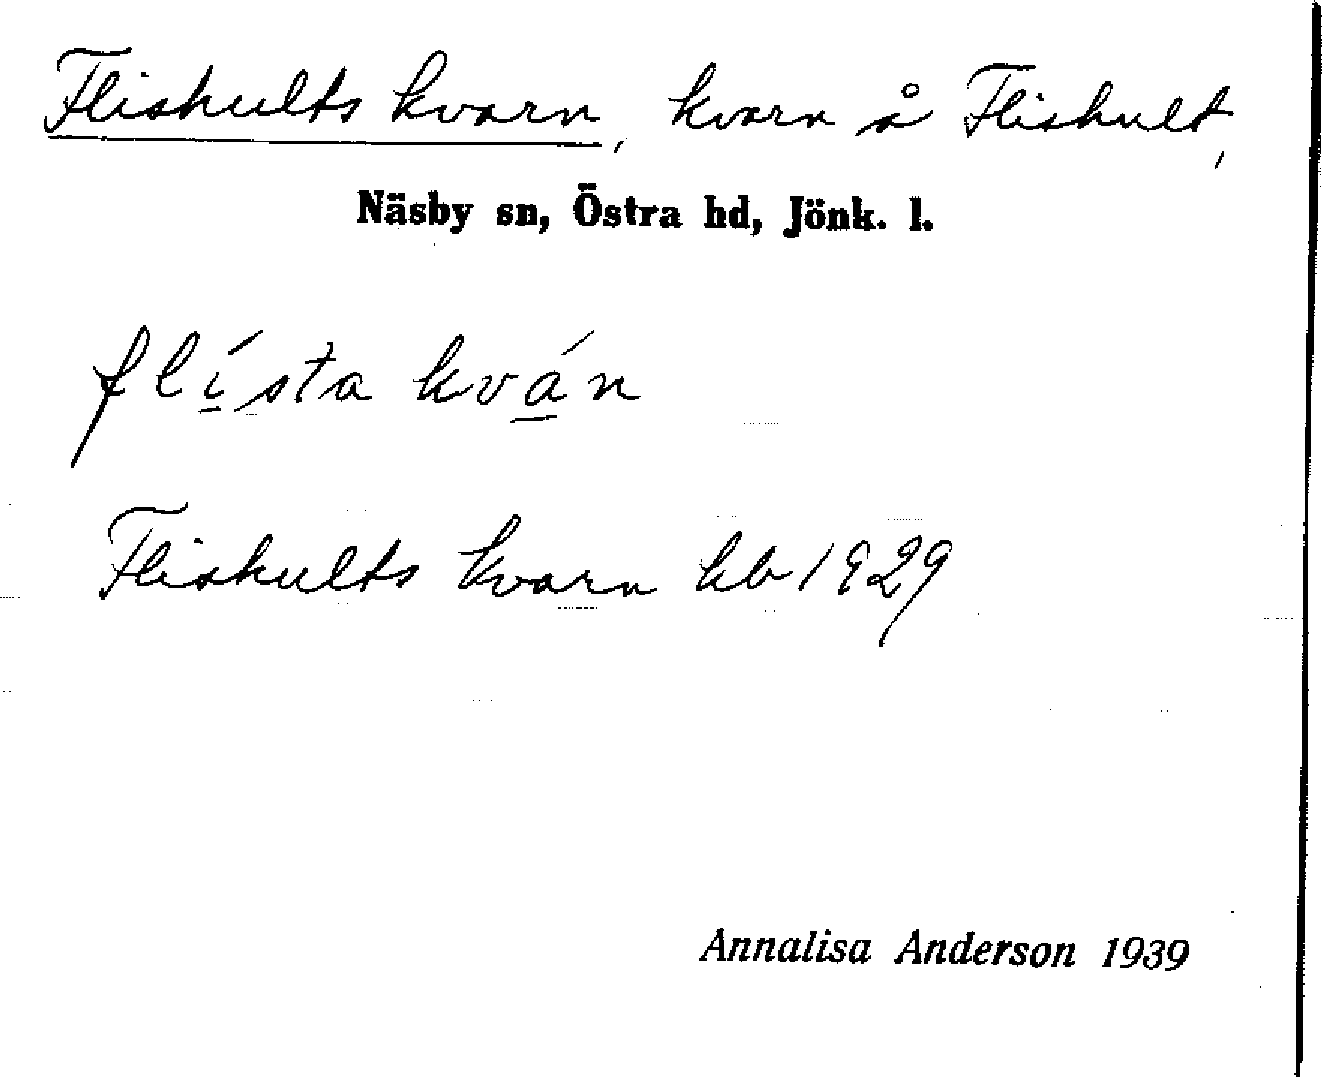 Fliskults kvarn, kvarn å Fliskult,
Näsby sn, Östra hd, Jönk. l.
flı̲́sta kvá̲n
Fliskults kvarn kb 1929
Annalisa Anderson 1939